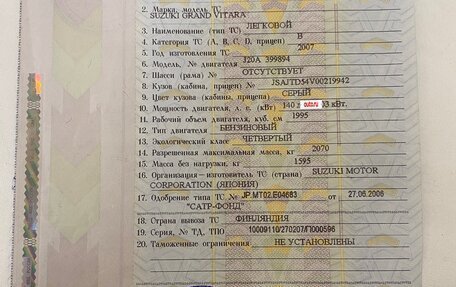 2. Марка, модель ТС
SUZUKI GRAND VITARA
3. Наименование (тип ТС) ЛЕГКОВОЙ
4. Категория ТС (А, В, С, D, прицеп) В
5. Год изготовления ТС 2007
6. Модель, № двигателя J20A 399894
7. Шасси (рама) № ОТСУТСТВУЕТ
8. Кузов (кабина, прицеп) № JSAJTD54V00219942
9. Цвет кузова (кабины, прицепа) СЕРЫЙ
10. Мощность двигателя, л. с. (кВт) 140 auto.ru 03 кВт.
11. Рабочий объем двигателя, куб. см 1995
12. Тип двигателя БЕНЗИНОВЫЙ
13. Экологический класс ЧЕТВЕРТЫЙ
14. Разрешенная максимальная масса, кг 2070
15. Масса без нагрузки, кг 1595
16. Организация—изготовитель ТС (страна) SUZUKI MOTOR
CORPORATION (ЯПОНИЯ)
17. Одобрение типа ТС № JP.MT02.E04683 от 27.06.2006
"САТР-ФОНД"
18. Страна вывоза ТС ФИНЛЯНДИЯ
19. Серия, № ТД, ТПО 10009110/270207/П000596
20. Таможенные ограничения НЕ УСТАНОВЛЕНЫ